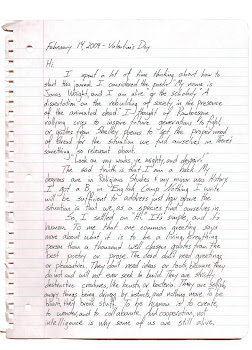 February 14, 2009 - Valentine's Day
Hi.
I spent a lot of time thinking about how to
start this journal. I considered the poetic "My name is
James Wright, and I am alive" or the scholarly "A
dissertation on the rebuilding of society in the presence
of the animated dead." I thought of
rallying cries to inspire future generations to fight,
or quotes from Shelley Poems to set the proper mood
of dread for the situation we find ourselves in. Here's
something so relevant about
"Look on my works, ye mighty, and despair!"
The sad truth is that I am a hack. My
degrees are in Religious Studies & my minor was History.
I got a B in English Comp. Nothing I write
will be sufficient to address just how alone the
situation is that we, as a species find ourselves in.
So, I settled on "Hi." It's simple, and it's
human. To me that one common greeting says
more about what it is to be a living, breathing
person than a thousand well chosen quotes from the
best poetry or prose. The dead don't need greetings
or pleasantries. They don't need ideas or tools, because they
do not and will not ever seek to build. They are strictly
destructive creatures, like viruses or bacteria. They are
things being driven by instincts, and nothing more. To be
they break stuff. To be human is to create,
to wonder, and to collaborate. And cooperation, not
intelligence is why some of us are still alive.